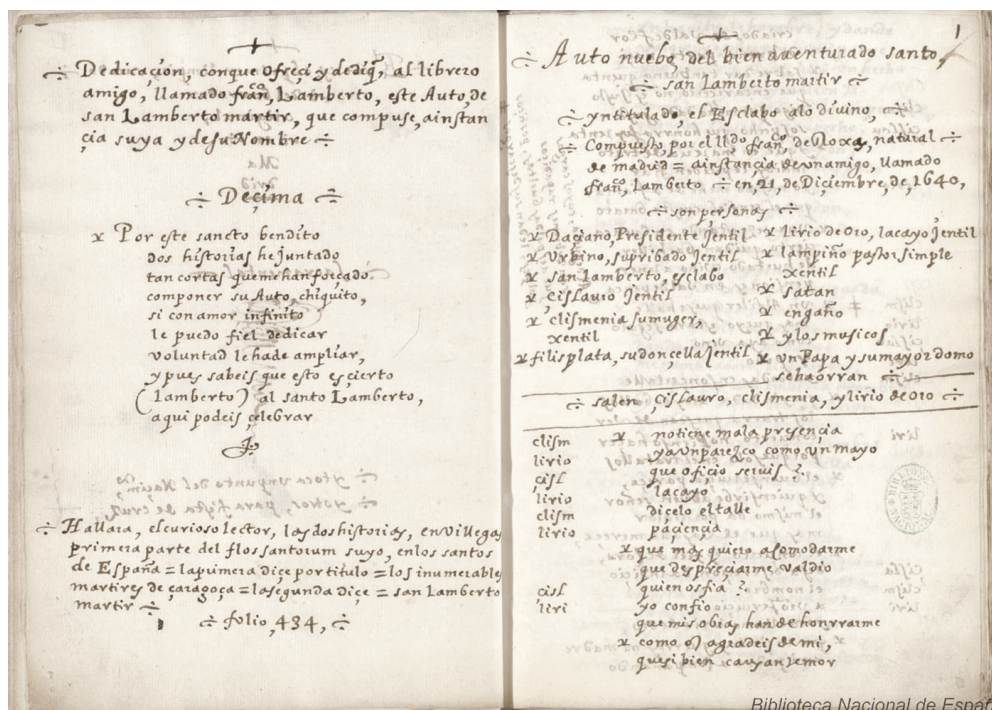 Dedicaçion, conque ofreçi y dediq̃, al librero
amigo, llamado fran.co Lamberto, este Auto, de
san Lamberto martir, que compuse, ainstan
çia suya ydesu Nombre
Deçima
Por este sancto bendito
dos historias hejuntado
tan cortas quemehanforçado
componer su Auto, chiquito,
si con amor infinito
le puedo fiel dedicar
voluntad lehade ampliar,
ypues sabeis que esto escierto
(Lamberto) al santo Lamberto,
aqui podeis çelebrar
Hallara, elcurioso lector, lasdoshistorias, enVillegas
primera parte del flossantorum suyo, enlos santos
de España = laprimera diçe portitulo = los inumerables
martires de çaragoça = lasegunda diçe = san Lamberto
martir
folio, 434,
1
Auto nuebo del bienabenturado santo,
san Lamberto martir
yntitulado, el Esclabo alo divino,
Compuesto, por el lldo fran.co de Roxas, natural
de madrid = ainstançia deunamigo, llamado
fran.co Lamberto en, 21, de Diçiembre, de, 1640,
son personas
Daçiano, Presidente Jentil
Urbino, supribado Jentil
san Lamberto, esclabo
Cislauro Jentil
clismenia sumuger,
xentil
filis plata, sudonçella Jentil
lirio de Oro, lacayo Jentil
lampiño pastor simple
xentil
satan
engaño
ylos musicos
un Papa y sumayordomo
salen, cislauro, clismenia, ylirio de oro
clism notiene mala presençia
lirio yaunparezco como un mayo
cisl que ofiçio servis?
lirio lacayo
clism diçelo eltalle
lirio paçiençia
que mas quiero acomodarme
que despreçiarme valdio
cisl quien osfia?
liri yo confio
quemis obras hande honrrarme
como os agradeis de mi,
quesi bien causan temor
Biblioteca Nacional de Españ